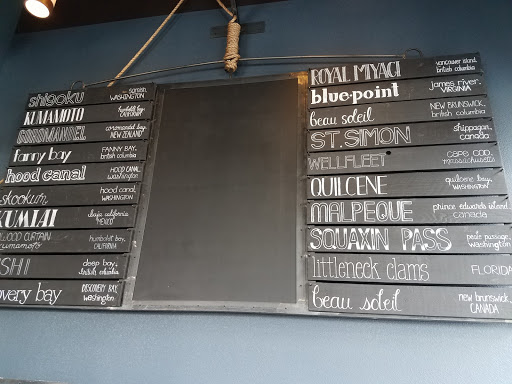 shigoku
samish,
WASHINGTON
KUMAMOTO
humboldt bay,
CALIFORNIA
COROMANDEL
coromandel bay,
NEW ZEALAND
fanny bay
FANNY BAY,
british columbia
hood canal
HOOD CANAL,
washington
skookum
hood canal,
WASHINGTON
KUMIAI
baja california
"MEXICO"
WOOD CURTAIN
kumamoto
humboldt bay,
CALIFORNIA
ISHI
deep bay,
british columbia
overy bay
DISCOVERY BAY,
washington
ROYAL MIYAGI
vancouver island,
british columbia
blue-point
james river,
VIRGINIA
beau soleil
NEW BRUNSWICK,
british columbia
ST. SIMON
shippagan,
canada
WELLFLEET
CAPE COD,
massachusetts
QUILCENE
quilcene bay,
"WASHINGTON"
MALPEQUE
prince edwards island,
canada
SQUAXIN PASS
peale passage,
washington
littleneck clams
FLORIDA
beau soleil
new brunswick,
CANADA